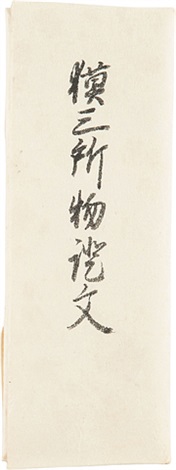 獏三所物證文